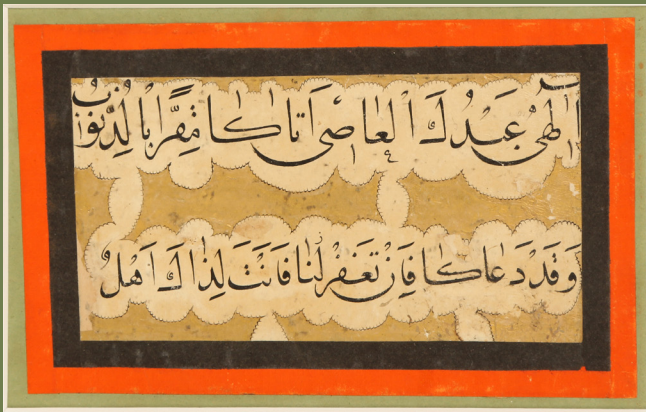 اِلٰهِىْ عَبْدُكَ الْعَاصِى اَتَاكَا مُقِرًّا بِالذُّنُوبِ
وَقَدْ دَعَاكَا فَاِنْ تَغْفِرْ لَنَا فَاَنْتَ لِذَاكَ اَهْلٌ